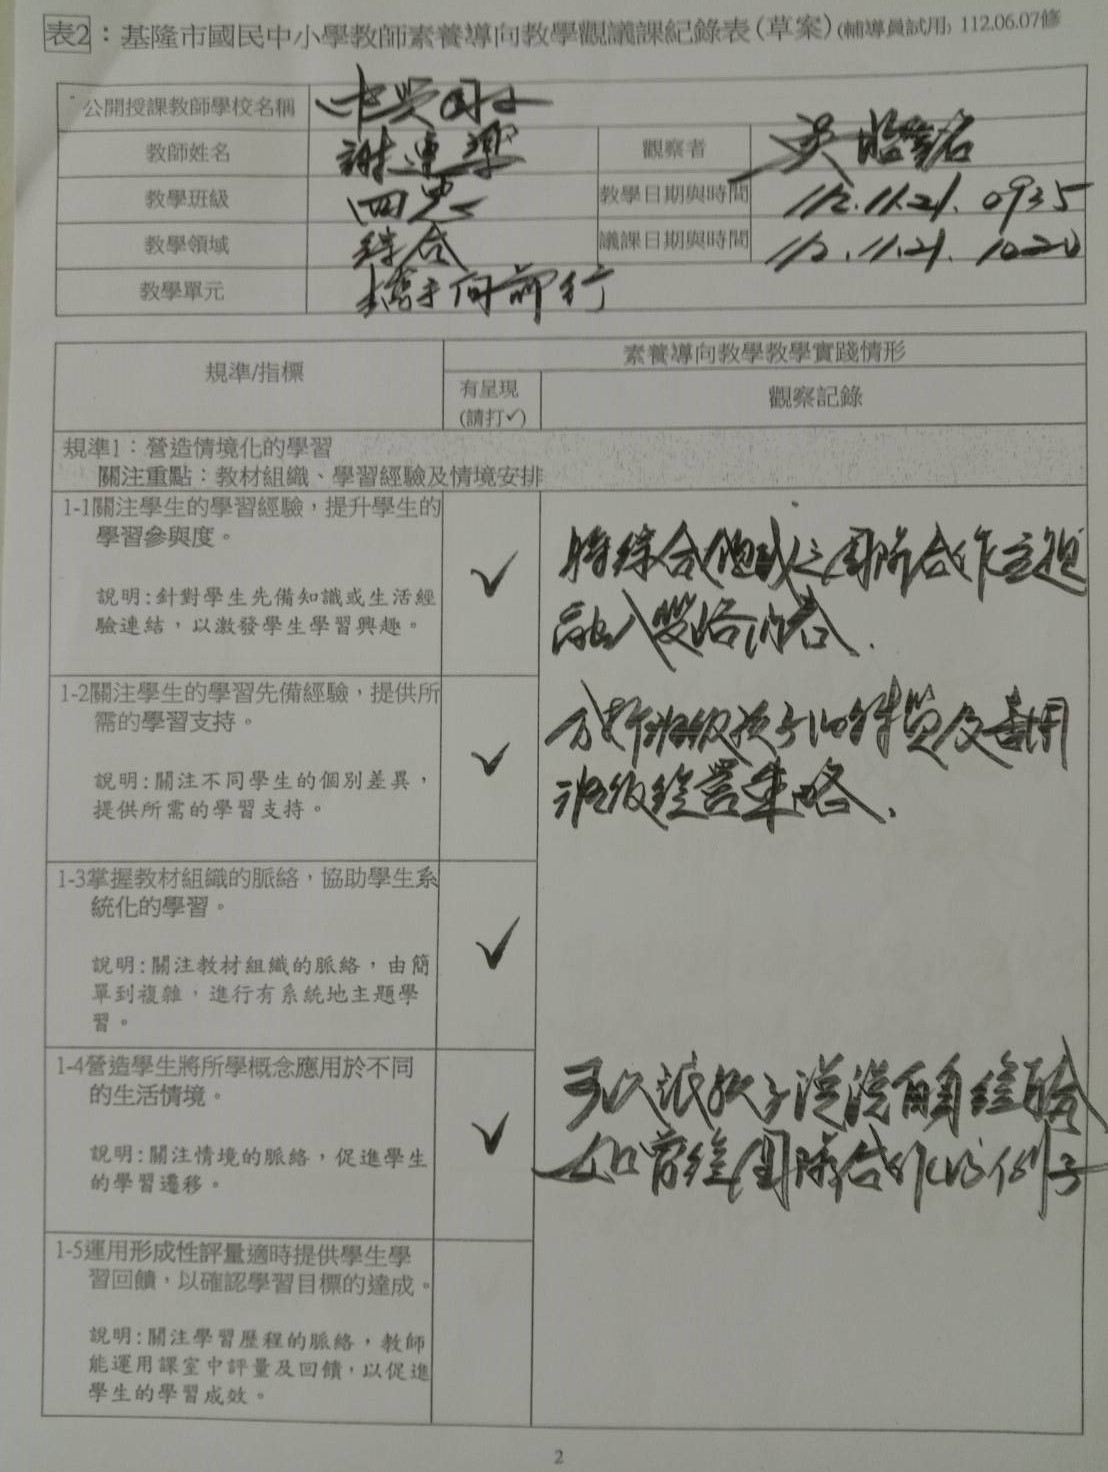 表2：基隆市國民中小學教師素養導向教學觀議課紀錄表(草案)(輔導員試用) 112.06.07修
公開授課教師學校名稱 中興國小
教師姓名 謝 觀察者 吳
教學班級 四忠 教學日期與時間 112.11.21. 0935
教學領域 綜合 議課日期與時間 112.11.21. 1020
教學單元 攜手向前行
規準/指標 素養導向教學教學實踐情形
有呈現
(請打✓) 觀察記錄
規準1：營造情境化的學習
關注重點：教材組織、學習經驗及情境安排
1-1關注學生的學習經驗，提升學生的
學習參與度。
說明:針對學生先備知識或生活經
驗連結，以激發學生學習興趣。
✓
將綜合領域之團隊合作主題
融入雙語內容.
1-2關注學生的學習先備經驗，提供所
需的學習支持。
說明:關注不同學生的個別差異，
提供所需的學習支持。
✓
分析班級孩子的特質及善用
班級經營策略.
1-3掌握教材組織的脈絡，協助學生系
統化的學習。
說明:關注教材組織的脈絡，由簡
單到複雜，進行有系統地主題學
習。
✓
1-4營造學生將所學概念應用於不同
的生活情境。
說明:關注情境的脈絡，促進學生
的學習遷移。
✓
可以讓孩子說說自身經驗
如曾經團隊合作的例子
1-5運用形成性評量適時提供學生學
習回饋，以確認學習目標的達成。
說明:關注學習歷程的脈絡，教師
能運用課室中評量及回饋，以促進
學生的學習成效。
2